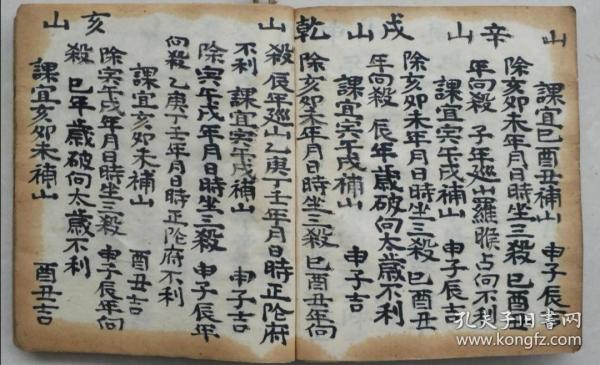 山
課宜巳酉丑補山 申子辰吉
辛山
除亥卯未年月日時坐三殺 巳酉丑
年向殺 子年巡山羅睺占向不利
課宜寅午戌補山 申子辰吉
戌山
除亥卯未年月日時坐三殺 巳酉丑
年向殺 辰年歲破向太歲不利
課宜寅午戌補山 申子吉
乾山
除亥卯未年月日時坐三殺 巳酉丑年向
殺 辰年巡山乙庚丁壬年月日時正陰府
不利 課宜寅午戌補山 申子吉
除寅午戌年月日時坐三殺 申子辰年
向殺 乙庚丁壬年月日時正陰府不利
課宜亥卯未補山 酉丑吉
亥山
除寅午戌年月日時坐三殺 申子辰年向
殺 巳年歲破向太歲不利
課宜亥卯未補山 酉丑吉
孔夫子旧书网
www.kongfz.com